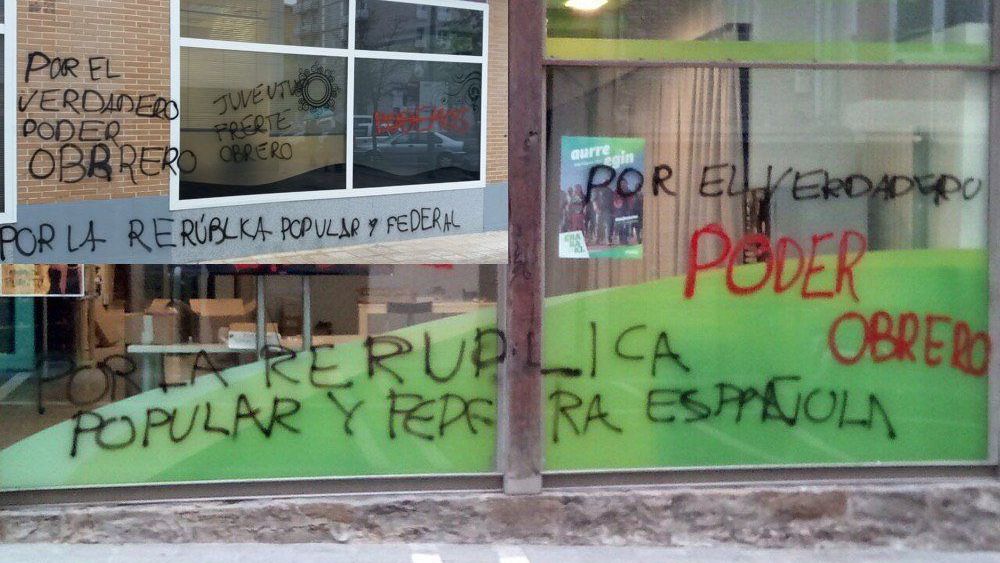 POR EL
VERDADERO
PODER
OBRRERO
JUVENTU
FRERTE
OBRERO
POR LA RERÚBLKA POPULAR Y FEDERAL
aurre
egin
POR EL VERDADERO
PODER
OBRERO
POR LA RERUPLICA
POPULAR Y FEDERA ESPAÑOLA